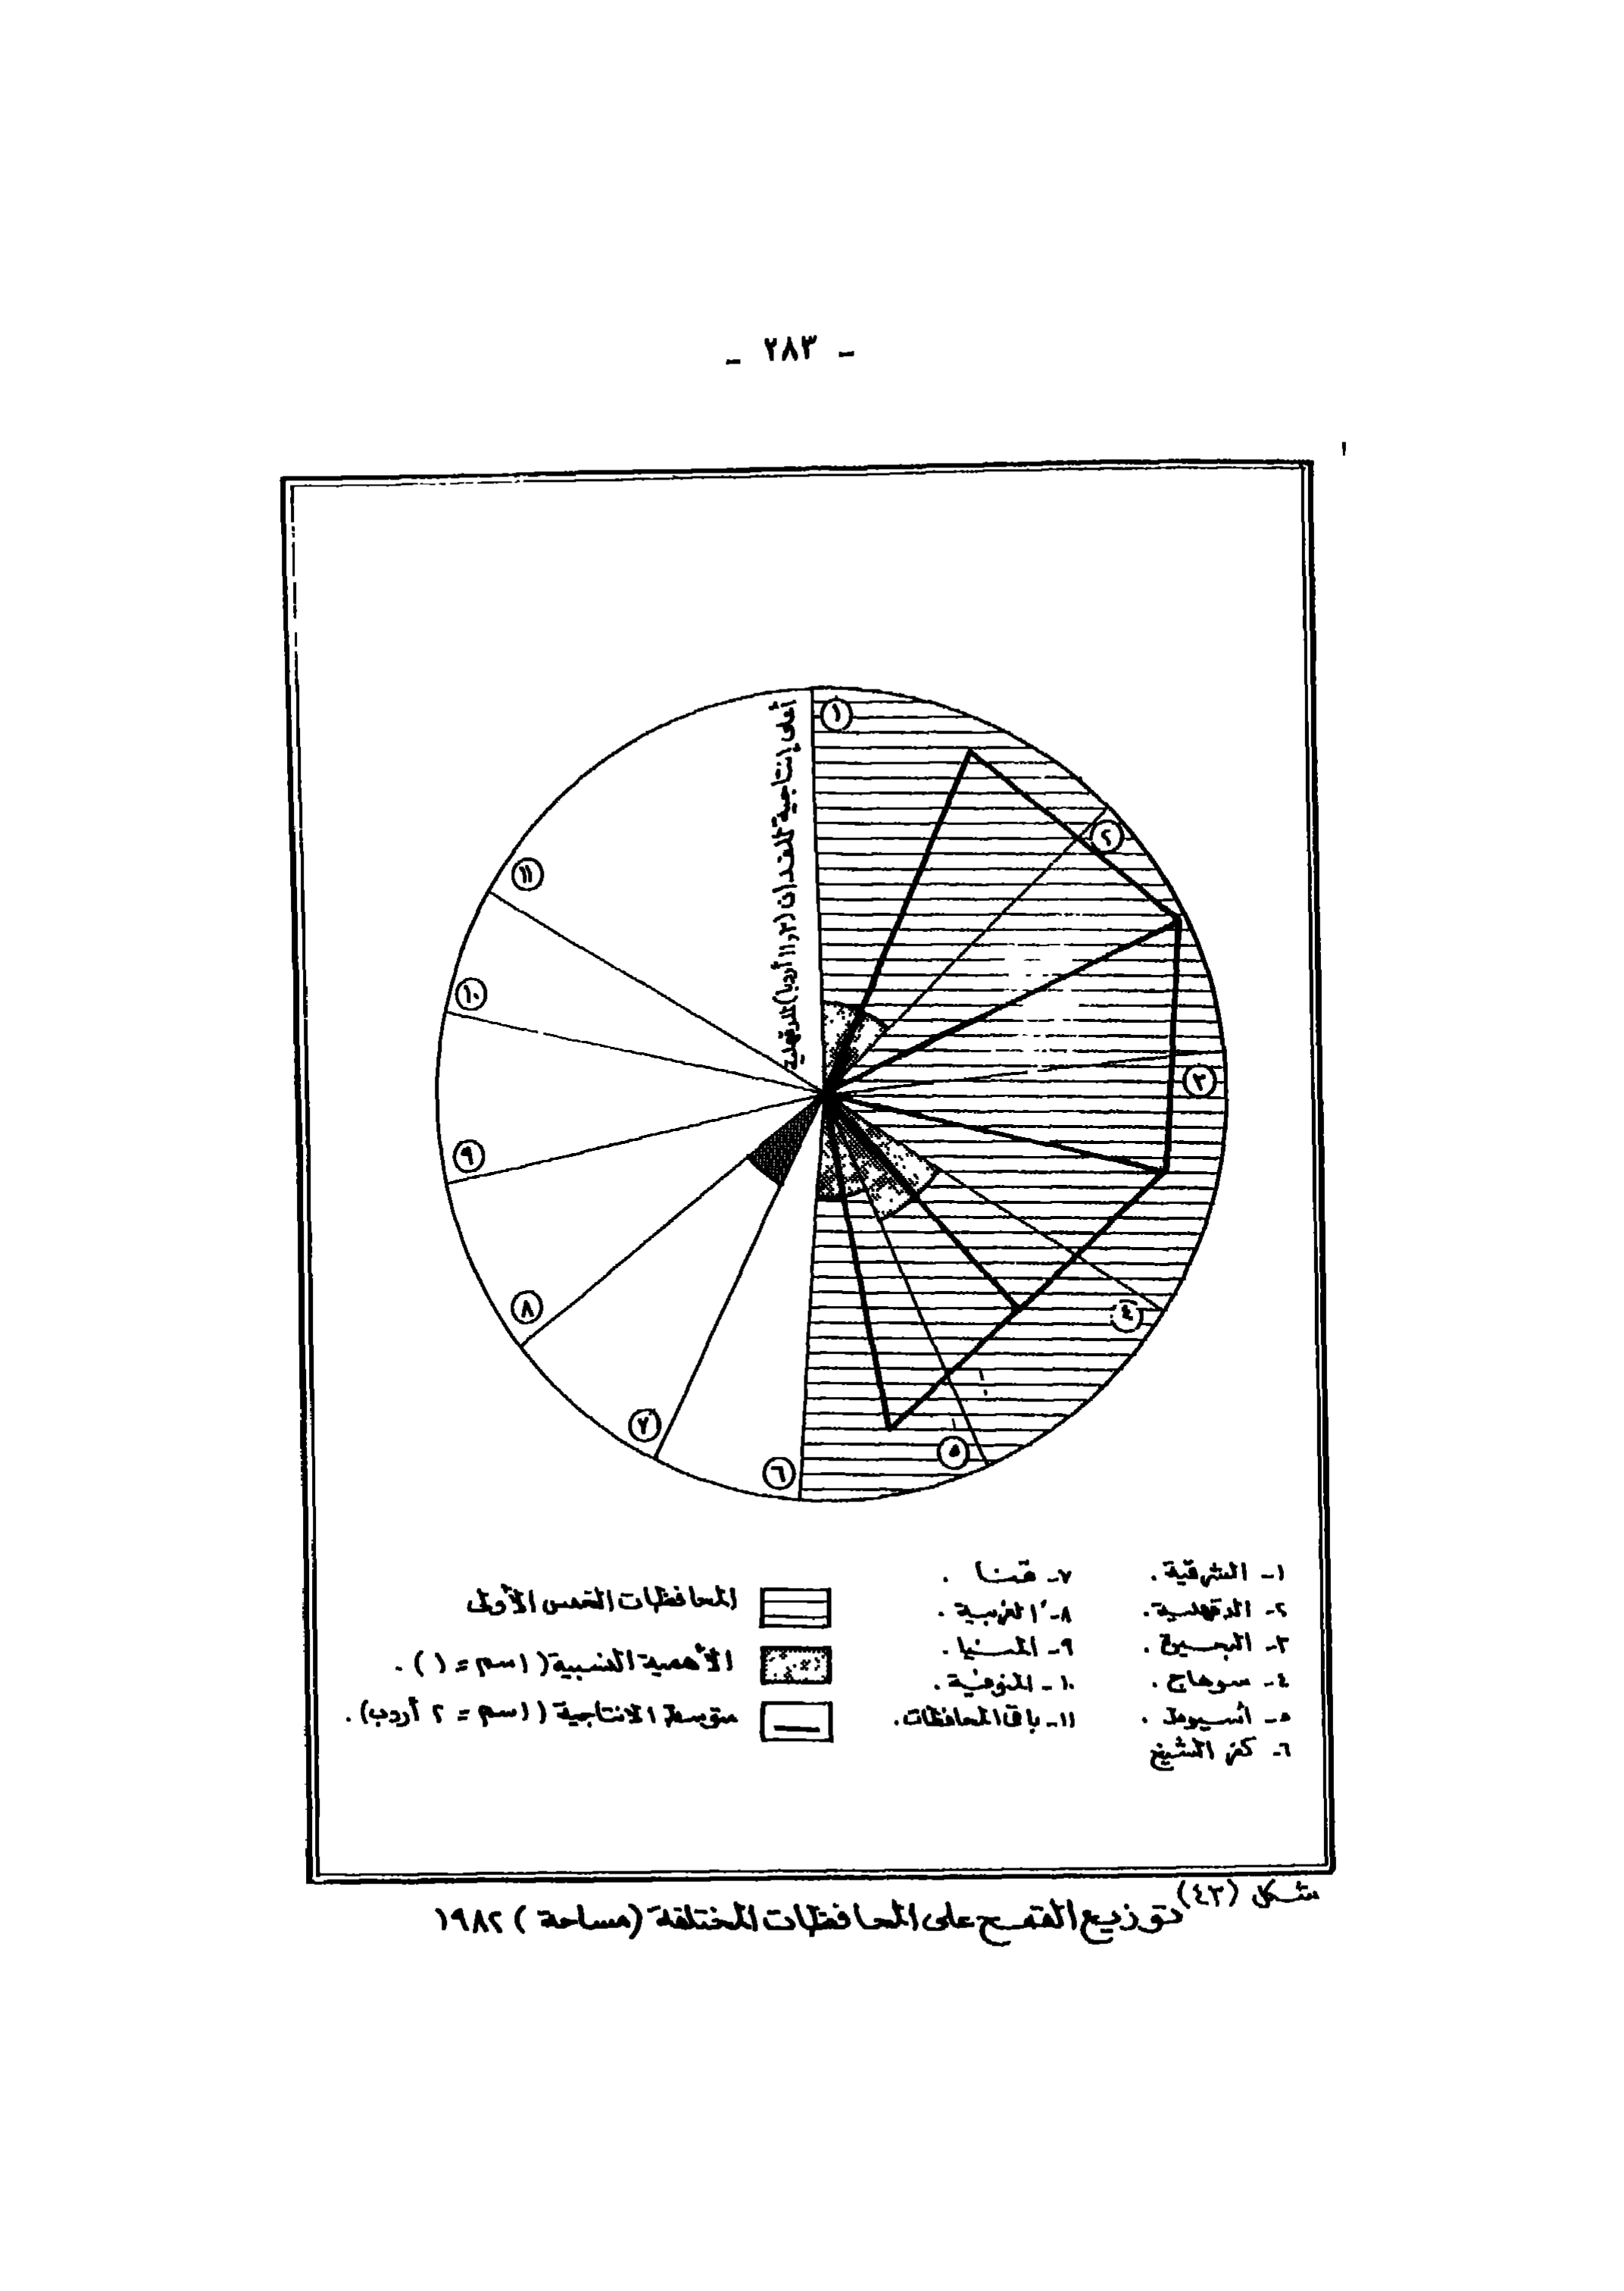 - ٢٨٣ -
أعلى إنتاجية للفدان (١١,٣ أردبا) للدقهلية
١
٢
٣
٤
٥
٦
٧
٨
٩
١٠
١١
١- الشرقية .
٢- الدقهلية .
٣- البحيرة .
٤- سوهاج .
٥- أسيوط .
٦- كفر الشيخ
٧- قنا .
٨- الغربية .
٩- المنيا .
١٠- المنوفية .
١١- باقى المحافظات .
المحافظات الخمس الأولى
الأهمية النسبية ( ١سم = ١ ) .
متوسط الانتاجية ( ١سم = ٢ أردب ) .
شكل (٤٣) توزيع القمح على المحافظات المختلفة (مساحة ) ١٩٨٢